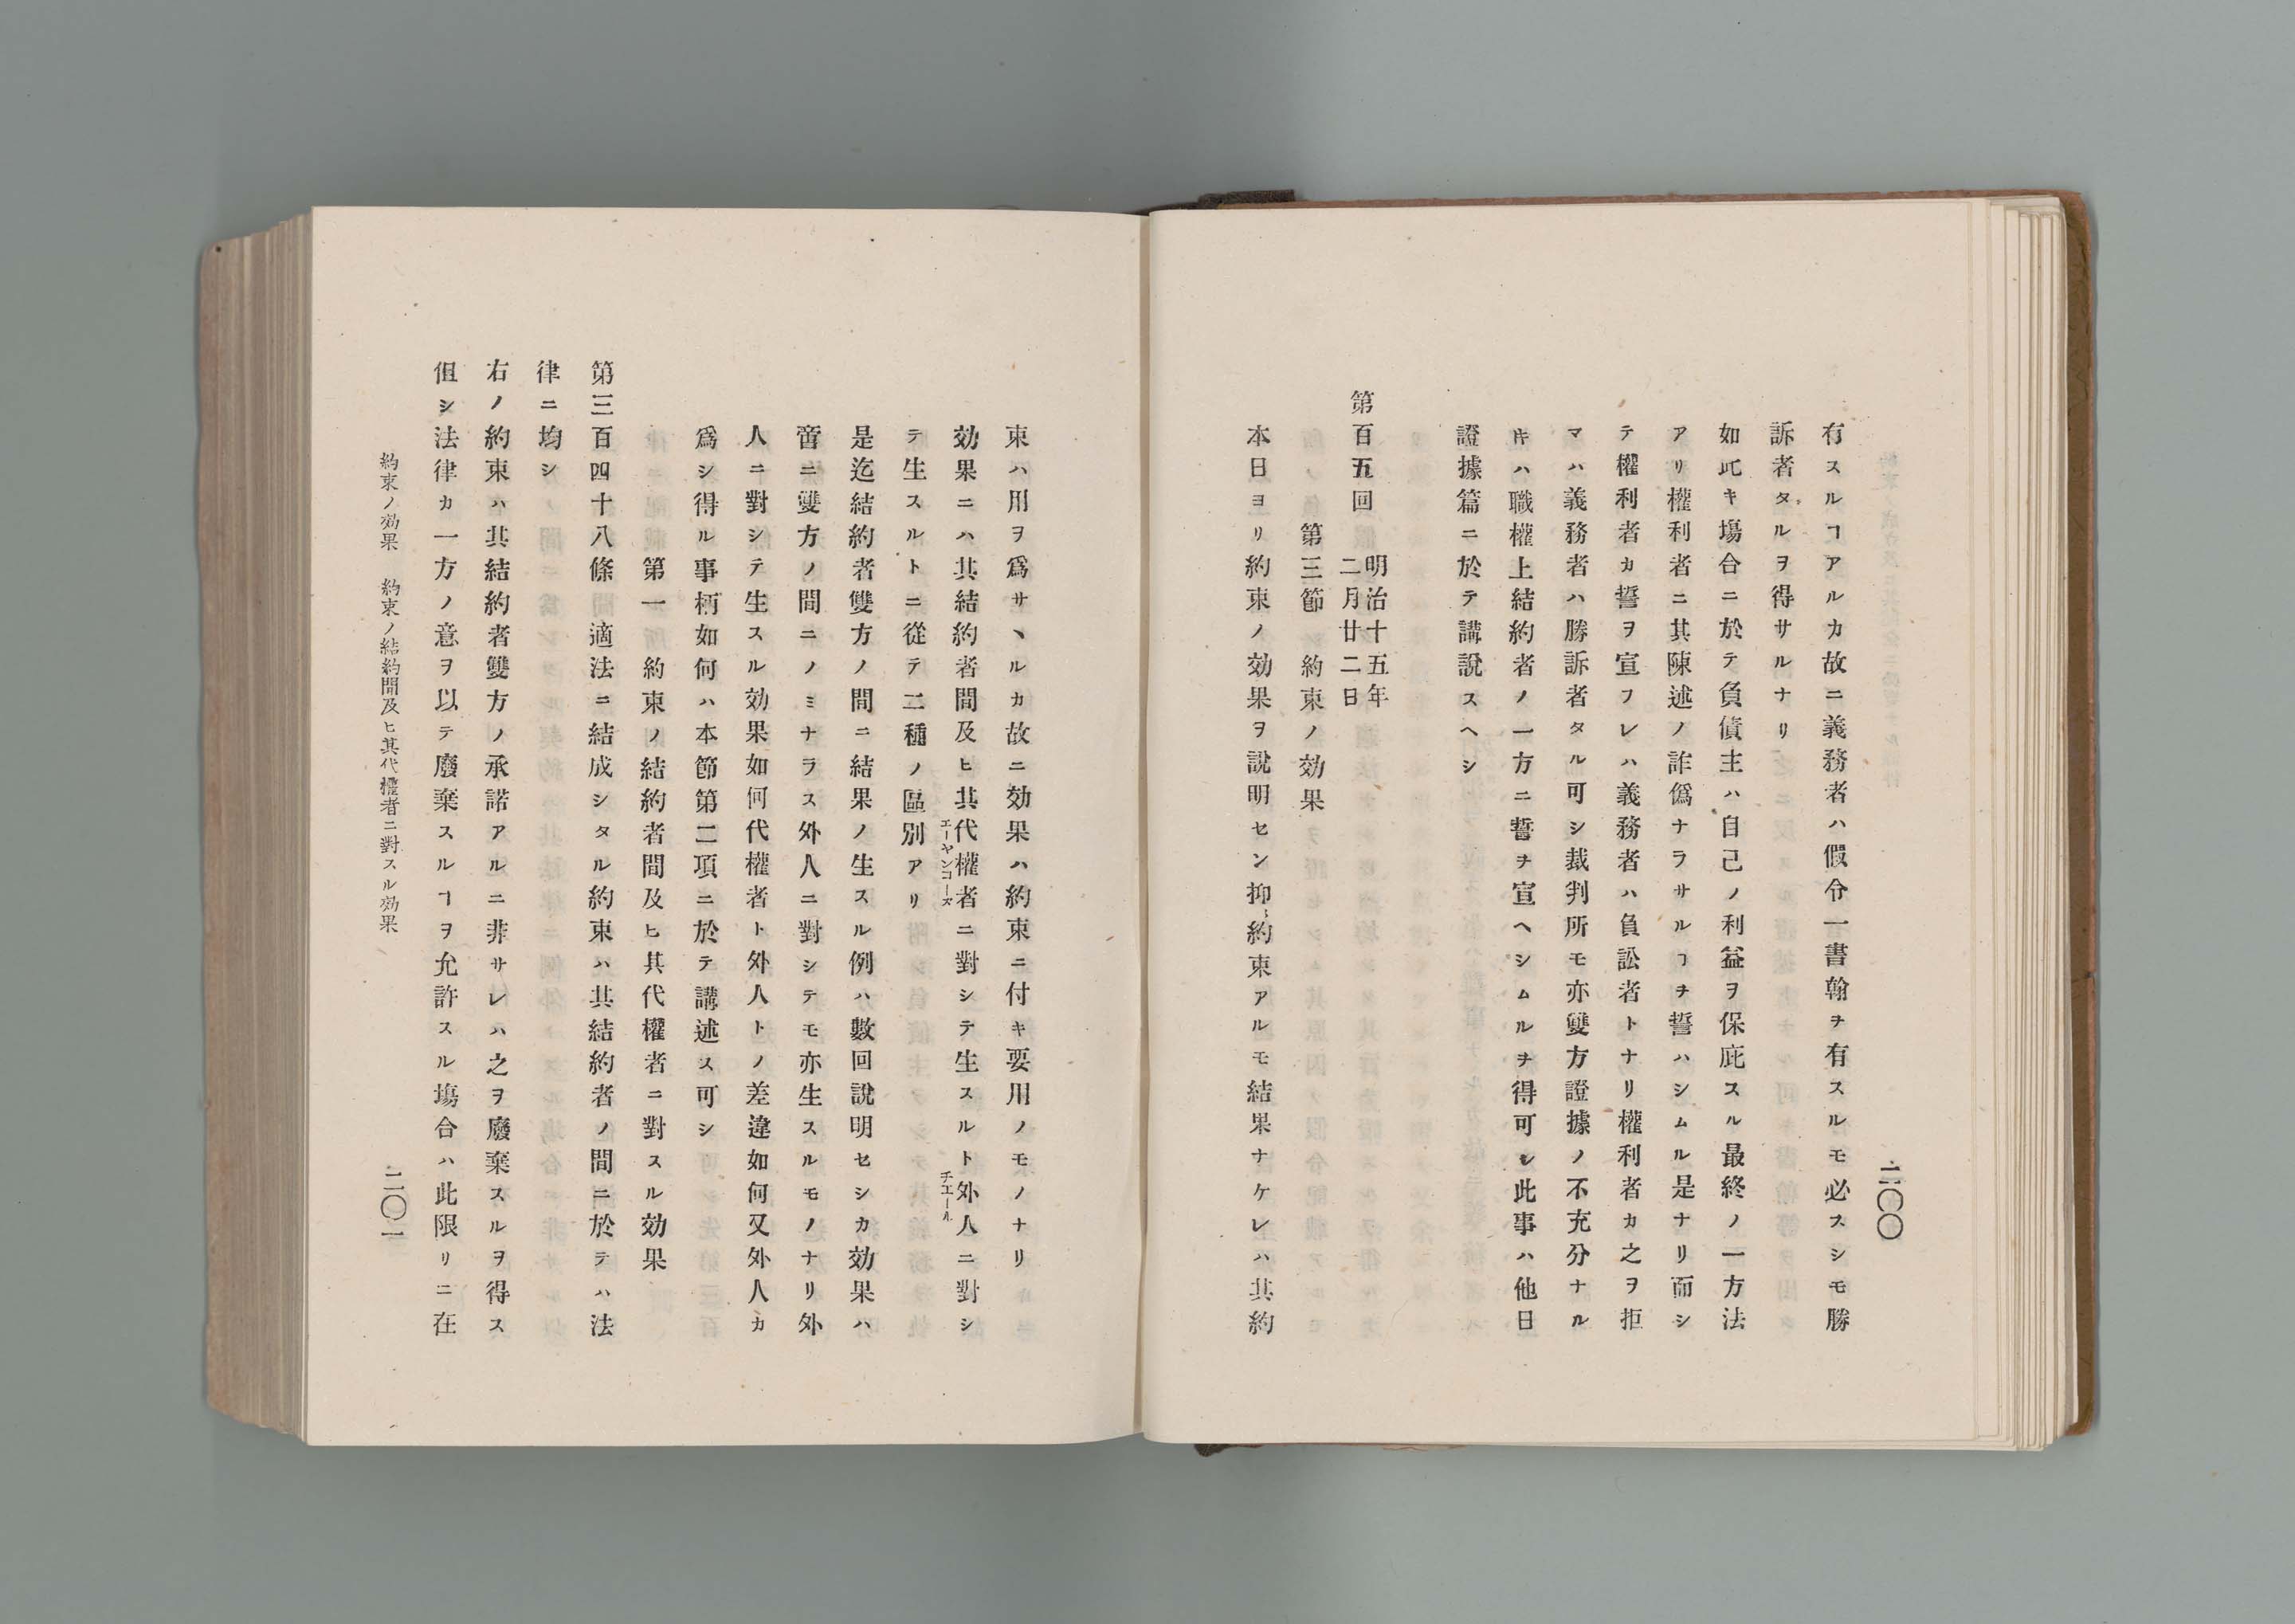 有スルヿアルカ故ニ義務者ハ假令一書翰ヲ有スルモ必スシモ勝
訴者タルヲ得サルナリ
如此キ塲合ニ於テ負債主ハ自己ノ利益ヲ保庇スル最終ノ一方法
アリ權利者ニ其陳述ノ詐僞ナラサルヿヲ誓ハシムル是ナリ而シ
テ權利者カ誓ヲ宣フレハ義務者ハ負訟者トナリ權利者カ之ヲ拒
マハ義務者ハ勝訴者タル可シ裁判所モ亦雙方證據ノ不充分ナル
キハ職權上結約者ノ一方ニ誓ヲ宣ヘシムルヲ得可シ此事ハ他日
證據篇ニ於テ講說スヘシ
第百五回 明治十五年二月廿二日
第三節 約束ノ効果
本日ヨリ約束ノ効果ヲ說明セン抑約束アルモ結果ナケレハ其約
二〇〇
束ハ用ヲ爲サヽルカ故ニ効果ハ約束ニ付キ要用ノモノナリ
効果ニハ其結約者間及ヒ其代權者ニ對シテ生スルト外人ニ對シ
エーヤンコーズ
チエール
テ生スルトニ從テ二種ノ區別アリ
是迄結約者雙方ノ間ニ結果ノ生スル例ハ數回說明セシカ効果ハ
啻ニ雙方ノ間ニノミナラス外人ニ對シテモ亦生スルモノナリ外
人ニ對シテ生スル効果如何代權者ト外人トノ差違如何又外人カ
爲シ得ル事柄如何ハ本節第二項ニ於テ講述ス可シ
第一 約束ノ結約者間及ヒ其代權者ニ對スル効果
第三百四十八條 適法ニ結成シタル約束ハ其結約者ノ間ニ於テハ法
律ニ均シ
右ノ約束ハ其結約者雙方ノ承諾アルニ非サレハ之ヲ廢棄スルヲ得ス
但シ法律カ一方ノ意ヲ以テ廢棄スルヿヲ允許スル塲合ハ此限リニ在
約束ノ効果 約束ノ結約間及ヒ其代權者ニ對スル効果
二〇一